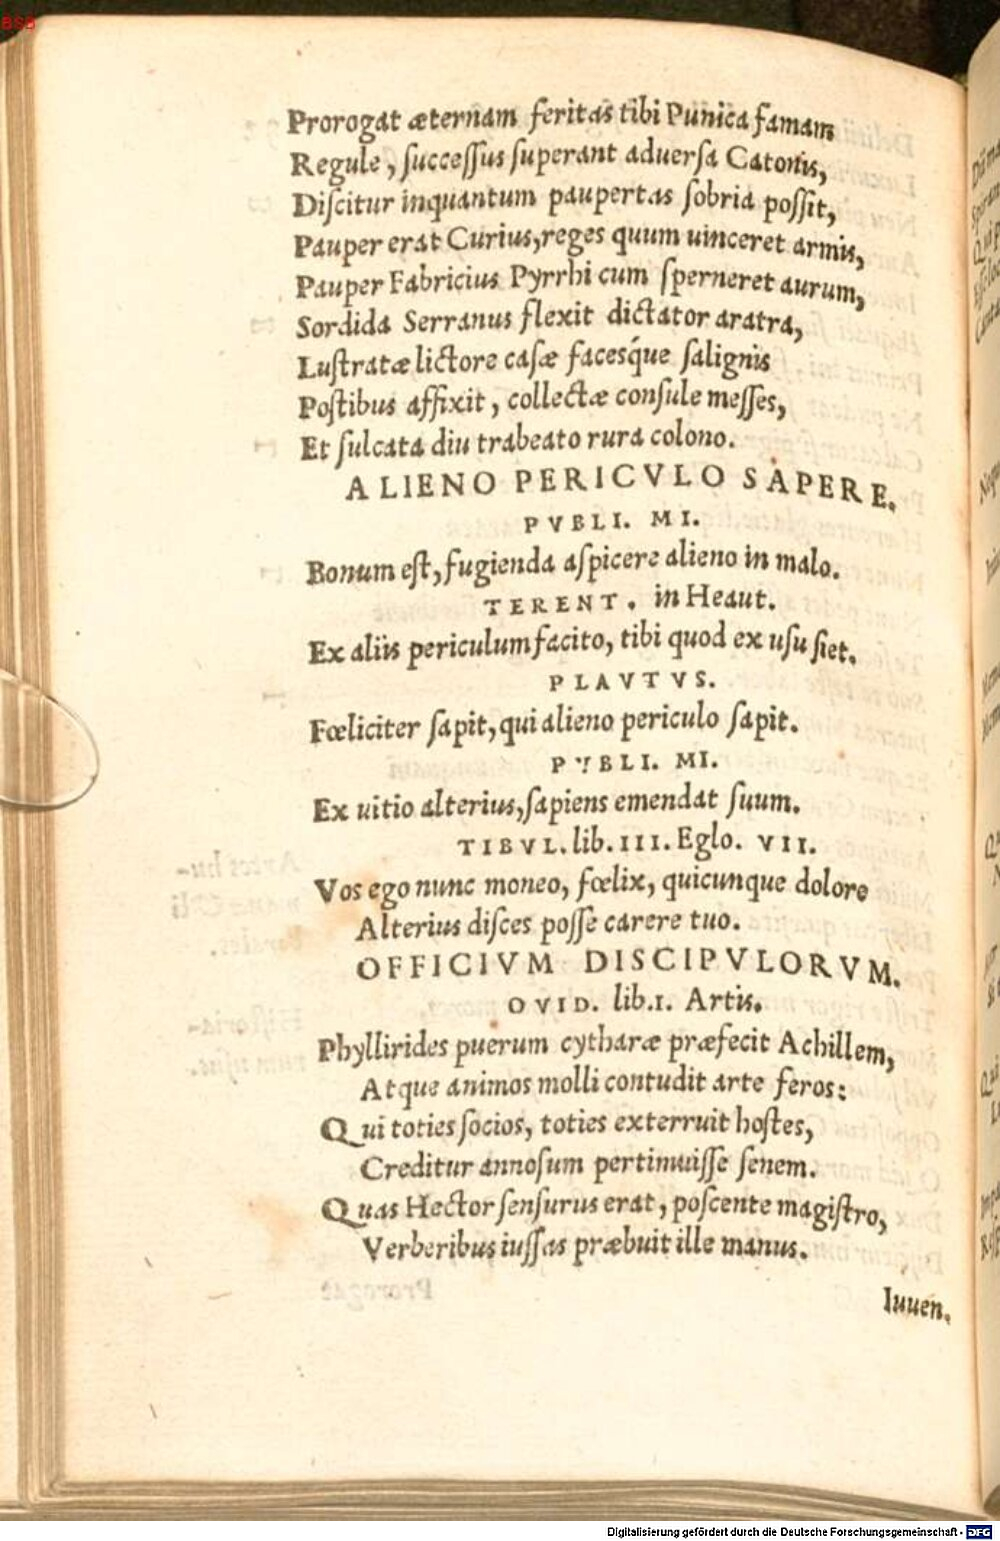 BSB
Prorogat æternam feritas tibi Punica famam
Regule, ſucceſſus ſuperant aduerſa Catonis,
Diſcitur inquantum paupertas ſobria poſſit,
Pauper erat Curius, reges quum uinceret armis,
Pauper Fabricius Pyrrhi cum ſperneret aurum,
Sordida Serranus flexit dictator aratra,
Luſtratæ lictore caſæ faceśque ſalignis
Poſtibus affixit, collectæ conſule meſſes,
Et ſulcata diu trabeato rura colono.
ALIENO PERICVLO SAPERE.
PVBLI. MI.
Bonum eſt, fugienda aſpicere alieno in malo.
TERENT. in Heaut.
Ex aliis periculum facito, tibi quod ex uſu ſiet.
PLAVTVS.
Fœliciter ſapit, qui alieno periculo ſapit.
PVBLI. MI.
Ex uitio alterius, ſapiens emendat ſuum.
TIBVL. lib. III. Eglo. VII.
Vos ego nunc moneo, fœlix, quicunque dolore
Alterius diſces poſſe carere tuo.
OFFICIVM DISCIPVLORVM.
OVID. lib. I. Artis.
Phyllirides puerum cytharæ præfecit Achillem,
Atque animos molli contudit arte feros:
Qui toties ſocios, toties exterruit hoſtes,
Creditur annoſum pertimuiſſe ſenem.
Quas Hector ſenſurus erat, poſcente magiſtro,
Verberibus iuſſas præbuit ille manus.
Iuuen.
Digitalisierung gefördert durch die Deutsche Forschungsgemeinschaft - DFG